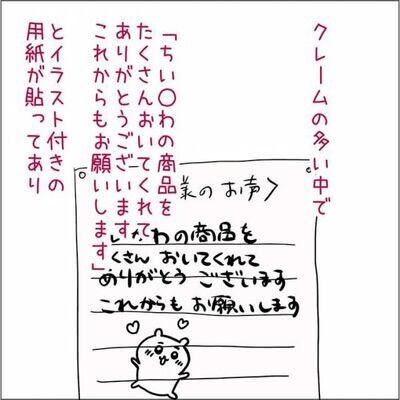 クレームの多い中で
「ちい〇わの商品を
たくさんおいてくれて
ありがとうございます
これからもお願いします」
とイラスト付きの
用紙が貼ってあり
様のお声>
わの商品を
くさん おいてくれて
ありがとう ございます
これからも お願いします